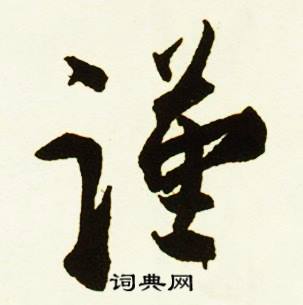 谨
词典网